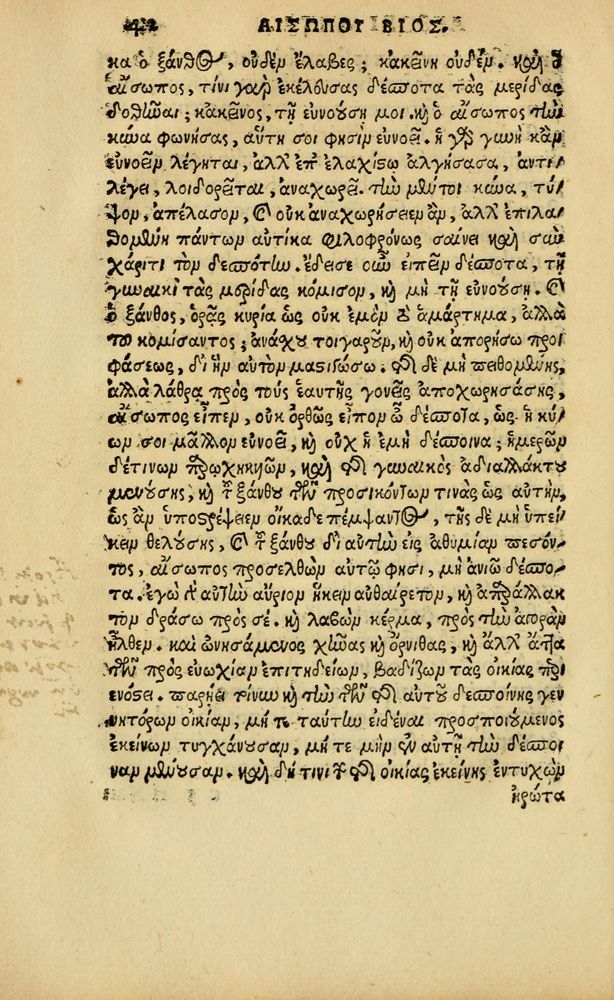 42 ΑΙΣΩΠΟΥ ΒΙΟΣ.
κα ὁ ξάνθος, οὐδὲν ἔλαβες; κἀκείνη οὐδέν. καὶ ὁ
αἴσωπος, τίνι γὰρ ἐκέλευσας δέσποτα τὰς μερίδας
δοθῆναι; κἀκεῖνος, τῇ εὐνούσῃ μοι. καὶ ὁ αἴσωπος τὴν
κύνα φωνήσας, αὕτη σοι φησὶν εὐνοεῖ. ἡ γὰρ γυνὴ κἂν
εὐνοεῖν λέγηται, ἀλλ' ἐπ' ἐλαχίστῳ ἀλγήσασα, ἀντι
λέγει, λοιδορεῖται, ἀναχωρεῖ. τὴν μέντοι κύνα, τύ
ψον, ἀπέλασον, καὶ οὐκ ἀναχωρήσειεν ἄν, ἀλλ' ἐπιλα
θομένη πάντων αὐτίκα φιλοφρόνως σαίνει καὶ σὺν
χάριτι τὸν δεσπότην. ἔδει σε οὖν εἰπεῖν δέσποτα, τῇ
γυναικὶ τὰς μερίδας κόμισον, καὶ μὴ τῇ εὐνούσῃ. καὶ
ὁ ξάνθος, ὁρᾷς κυρία ὡς οὐκ ἐμὸν τὸ ἁμάρτημα, ἀλλὰ
τοῦ κομίσαντος; ἀνάχου τοιγαροῦν, καὶ οὐκ ἀπορήσω προ
φάσεως, δι' ἣν αὐτὸν μαστιγώσω. τῆς δὲ μὴ πειθομένης,
ἀλλὰ λάθρα πρὸς τοὺς ἑαυτῆς γονεῖς ἀποχωρησάσης,
αἴσωπος εἶπεν, οὐκ ὀρθῶς εἶπον ὦ δέσποτα, ὡς ἡ κύ
ων σοι μᾶλλον εὐνοεῖ, καὶ οὐχ ἡ ἐμὴ δέσποινα; ἡμερῶν
δέ τινων παρῳχηκυιῶν, καὶ τῆς γυναικὸς ἀδιαλλάκτου
μενούσης, καὶ τοῦ ξάνθου τῶν προσηκόντων τινὰς ὡς αὐτὴν,
ὡς ἂν ὑποστρέψειεν οἴκαδε πέμψαντος, τῆς δὲ μὴ ὑπεί
κειν θελούσης, καὶ τοῦ ξάνθου δι' αὐτὴν εἰς ἀθυμίαν πεσόν
τος, αἴσωπος προσελθὼν αὐτῷ φησι, μὴ ἀνιῶ δέσπο
τα. ἐγὼ γὰρ αὐτὴν αὔριον ἥκειν αὐθαίρετον, καὶ ἀπαράλλακ
τον δράσω πρὸς σέ. καὶ λαβὼν κέρμα, πρὸς τὴν ἀγορὰν
ἦλθεν. καὶ ὠνησάμενος χῆνας καὶ ὄρνιθας, καὶ ἄλλ' ἄττα
τῶν πρὸς εὐωχίαν ἐπιτηδείων, βαδίζων τὰς οἰκίας περι
ενόστει. παρῄει τοίνυν καὶ τὴν τῶν τῆς αὐτοῦ δεσποίνης γεν
νητόρων οἰκίαν, μήτε ταύτην εἰδέναι προσποιούμενος
ἐκείνων τυγχάνουσαν, μήτε μὴν ἐν αὐτῇ τὴν δέσποι
ναν μένουσαν. καὶ δή τινι τῶν τῆς οἰκίας ἐκείνης ἐντυχὼν
ἠρώτα